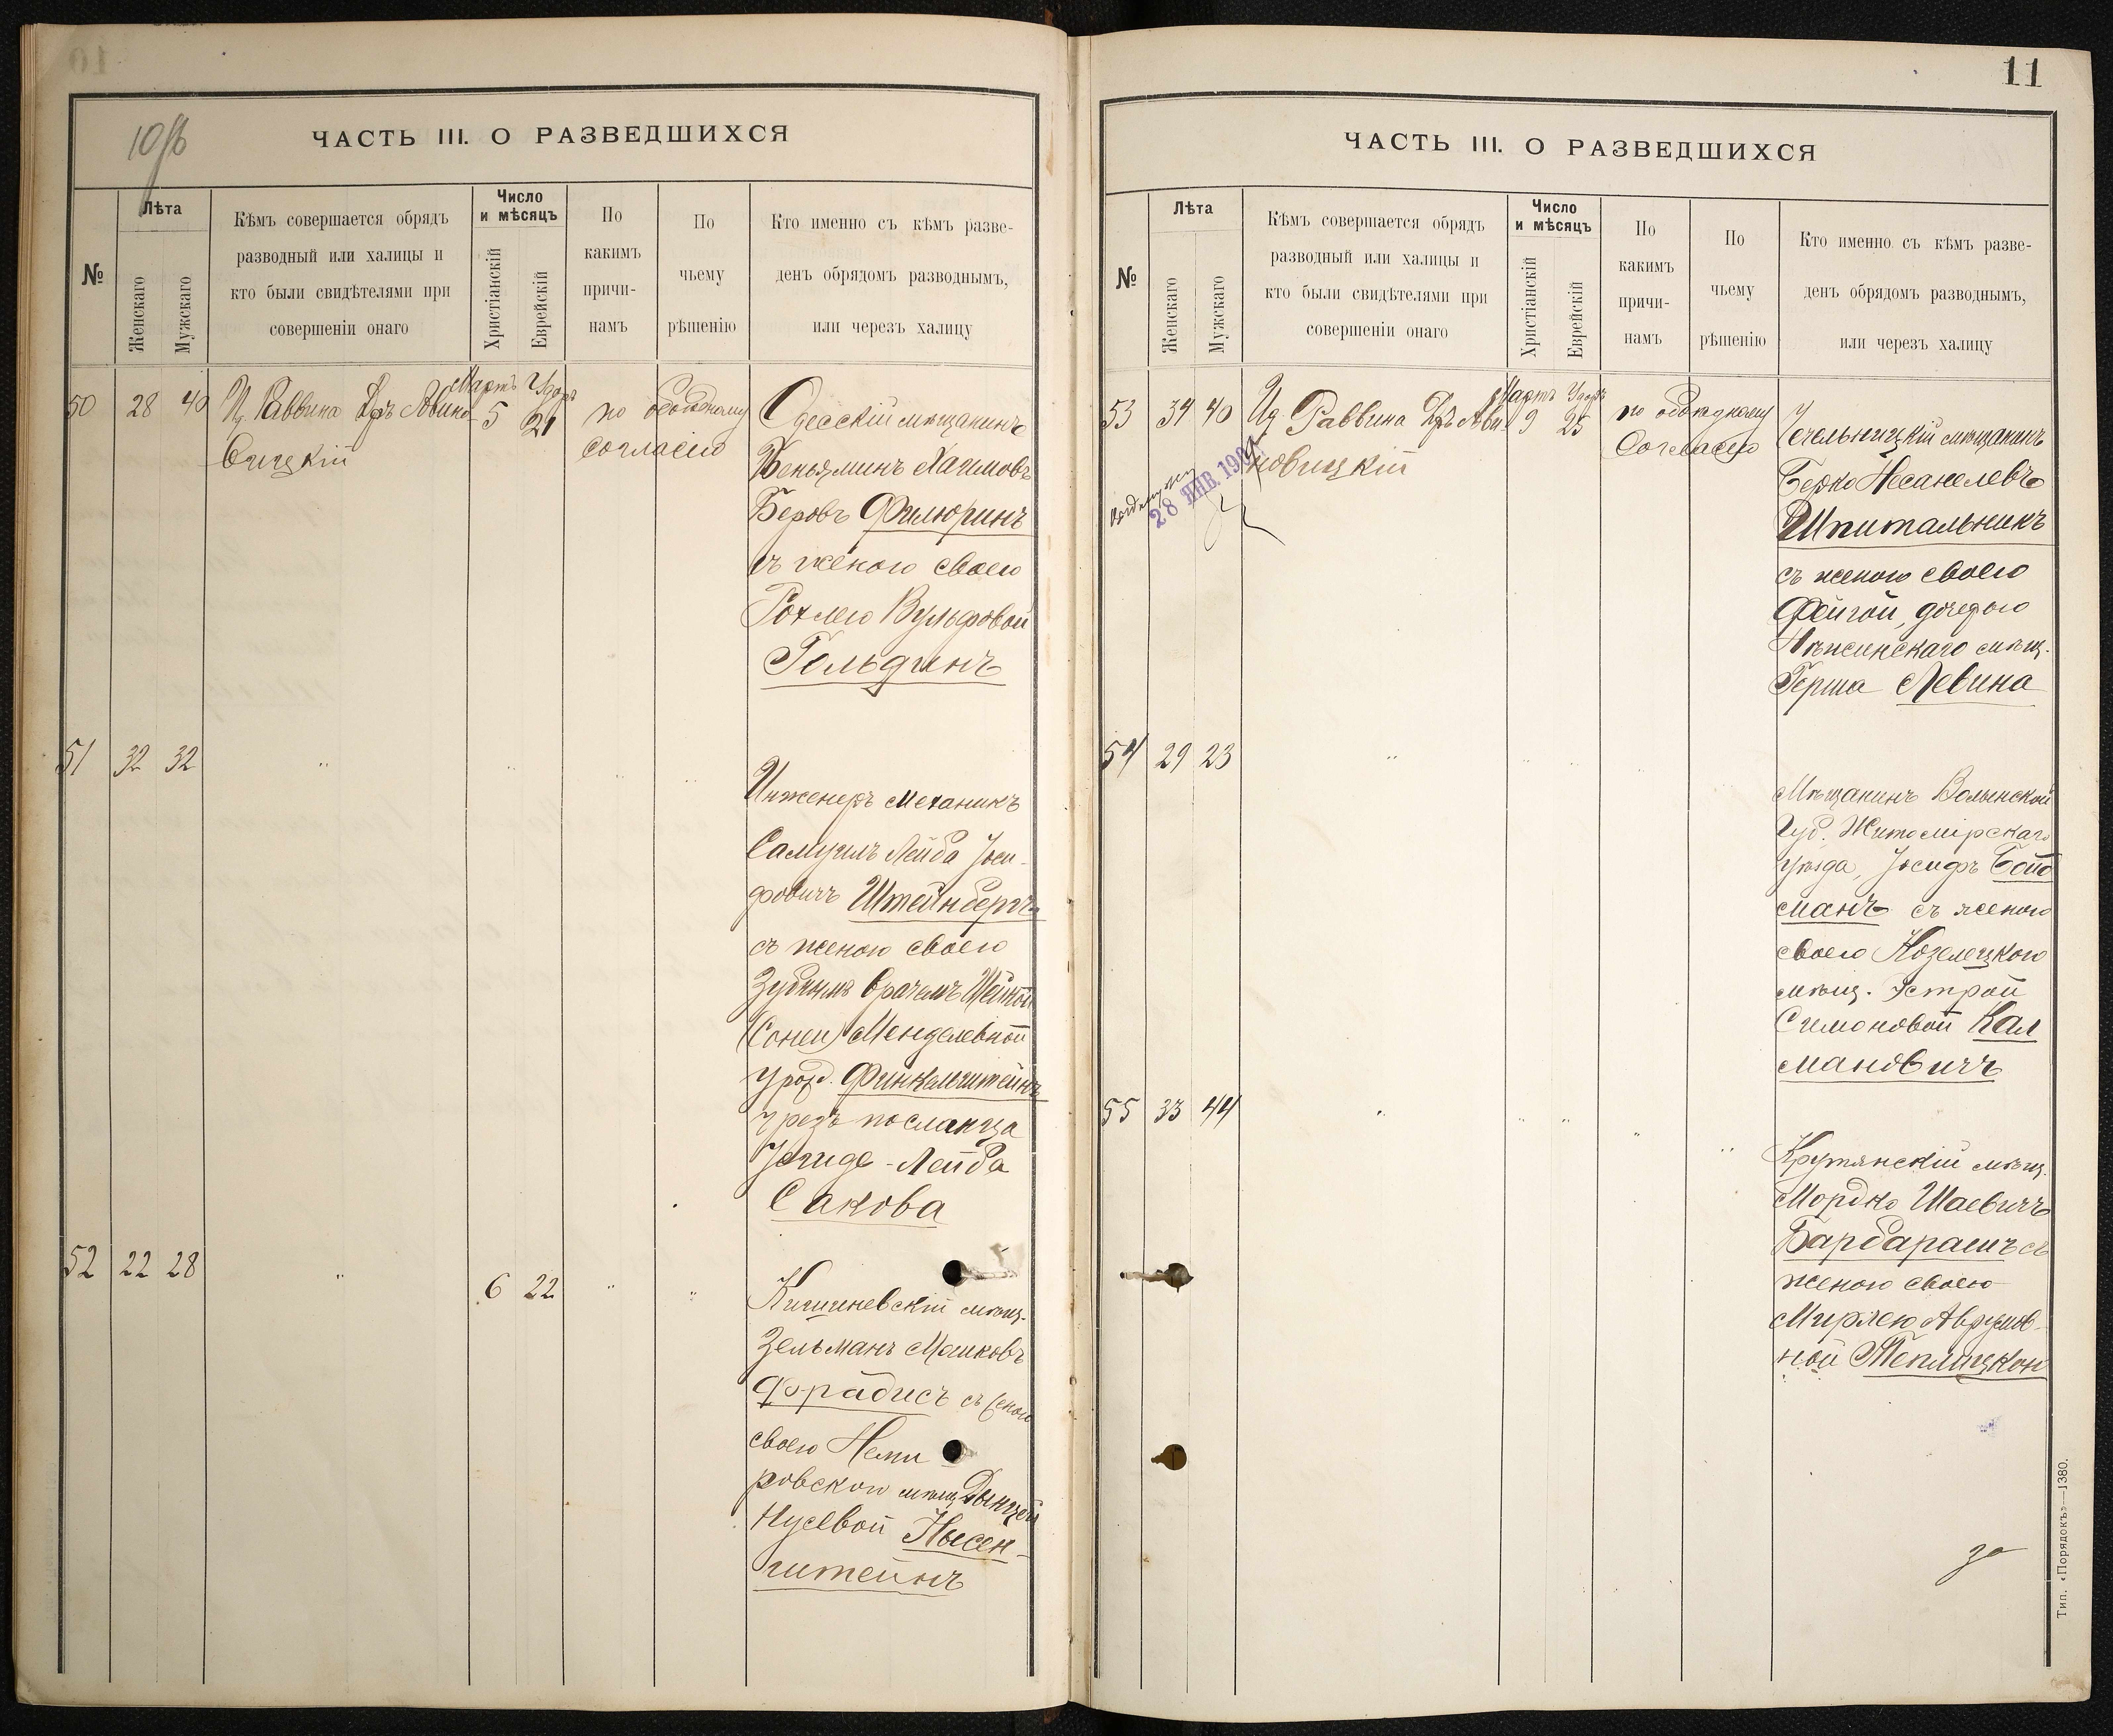 10 об
ЧАСТЬ III. О РАЗВЕДШИХСЯ
№
Лѣта
Женскаго
Мужскаго
Кѣмъ совершается обрядъ
разводный или халицы и
кто были свидѣтелями при
совершеніи онаго
Число
и мѣсяцъ
Христіанскій
Еврейскій
По
какимъ
причи-
намъ
По
чьему
рѣшенію
Кто именно съ кѣмъ разве-
денъ обрядомъ разводнымъ,
или черезъ халицу
50 28 40
Ид. Раввина Дръ Авино-
вицкій
Мартъ
5 21
по обоюдному
согласію
Одесскій мѣщанинъ
Беньяминъ Хаимовъ
Беровъ Филюринъ
съ женою своею
Рохлею Вульфовой
Гольдинъ
51 32 32 " " " " "
Инженеръ Механикъ
Самуилъ Лейба Іоси-
фовичъ Штейнбергъ
съ женою своею
Зубнымъ врачемъ Шейной
(Соней) Менделевной
урожд. Финкельштейнъ
чрезъ посланца
Сакова
52 22 28 " 6 22 " "
Кишиневскій мѣщ.
Зельманъ Машковъ
Фрадисъ съ женою
своею Неми
ровскою мѣщ.
Нусевой Нысен-
штейнъ
11
ЧАСТЬ III. О РАЗВЕДШИХСЯ
№
Лѣта
Женскаго
Мужскаго
Кѣмъ совершается обрядъ
разводный или халицы и
кто были свидѣтелями при
совершеніи онаго
Число
и мѣсяцъ
Христіанскій
Еврейскій
По
какимъ
причи-
намъ
По
чьему
рѣшенію
Кто именно съ кѣмъ разве-
денъ обрядомъ разводнымъ,
или черезъ халицу
53 34 40
Ид. Раввина Дръ Ави-
новицкій
28 ЯНВ.
Мартъ
9 25
по обоюдному
Согласію
Чечельницкій мѣщанинъ
Берко Несанелевъ
Шпитальникъ
съ женою своею
Фейгой, дочерью
Нѣжинскаго мѣщ.
Герша Левина
54 29 23 " " " " "
Мѣщанинъ Волынской
Губ. Житомірскаго
уѣзда, Іосифъ
манъ съ женою
своею Козелецкою
мѣщ. Эстрой
Симоновой Кал
мановичъ
55 33 44 " " " " "
Крутянскій мѣщ.
Мордко Шаевичъ
Барбарашъ съ
женою своею
Мирлею Аврумов-
ной Теплицкой
Тип. «Порядокъ»—1380.